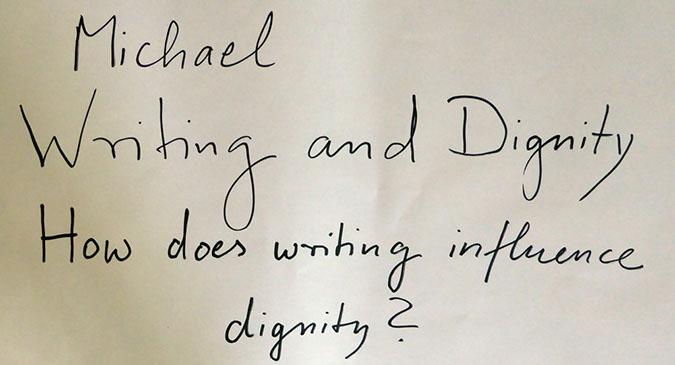 Michael
Writing and Dignity
How does writing influence
dignity?